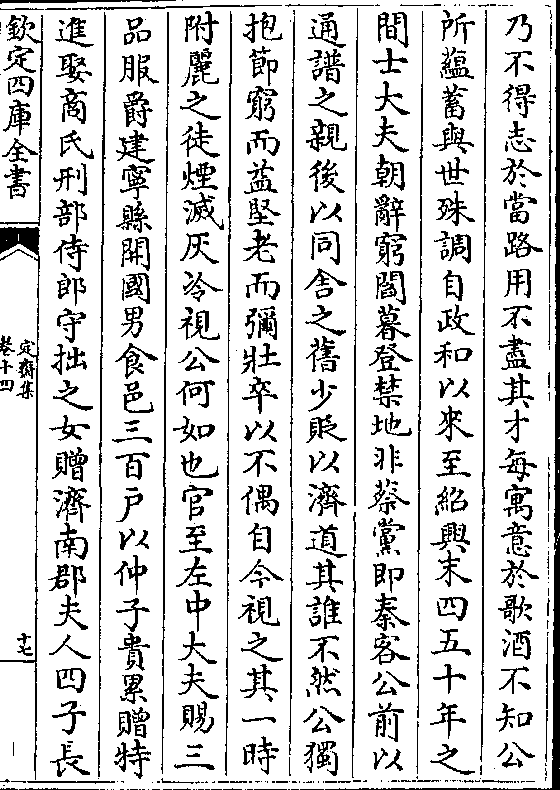 乃不得志於當路用不盡其才每寓意於歌酒不知公
所蘊蓄與世殊調自政和以來至紹興末四五十年之
間士大夫朝辭窮閻暮登禁地非蔡黨即秦客公前以
通譜之親後以同舍之舊少貶以濟道其誰不然公獨
抱節窮而益堅老而彌壯卒以不偶自今視之其一時
附麗之徒煙滅灰冷視公何如也官至左中大夫賜三
品服爵建寧縣開國男食邑三百戶以仲子貴累贈特
進娶商氏刑部侍郎守拙之女贈濟南郡夫人四子長
欽定四庫全書
定齋集
卷十四
十七